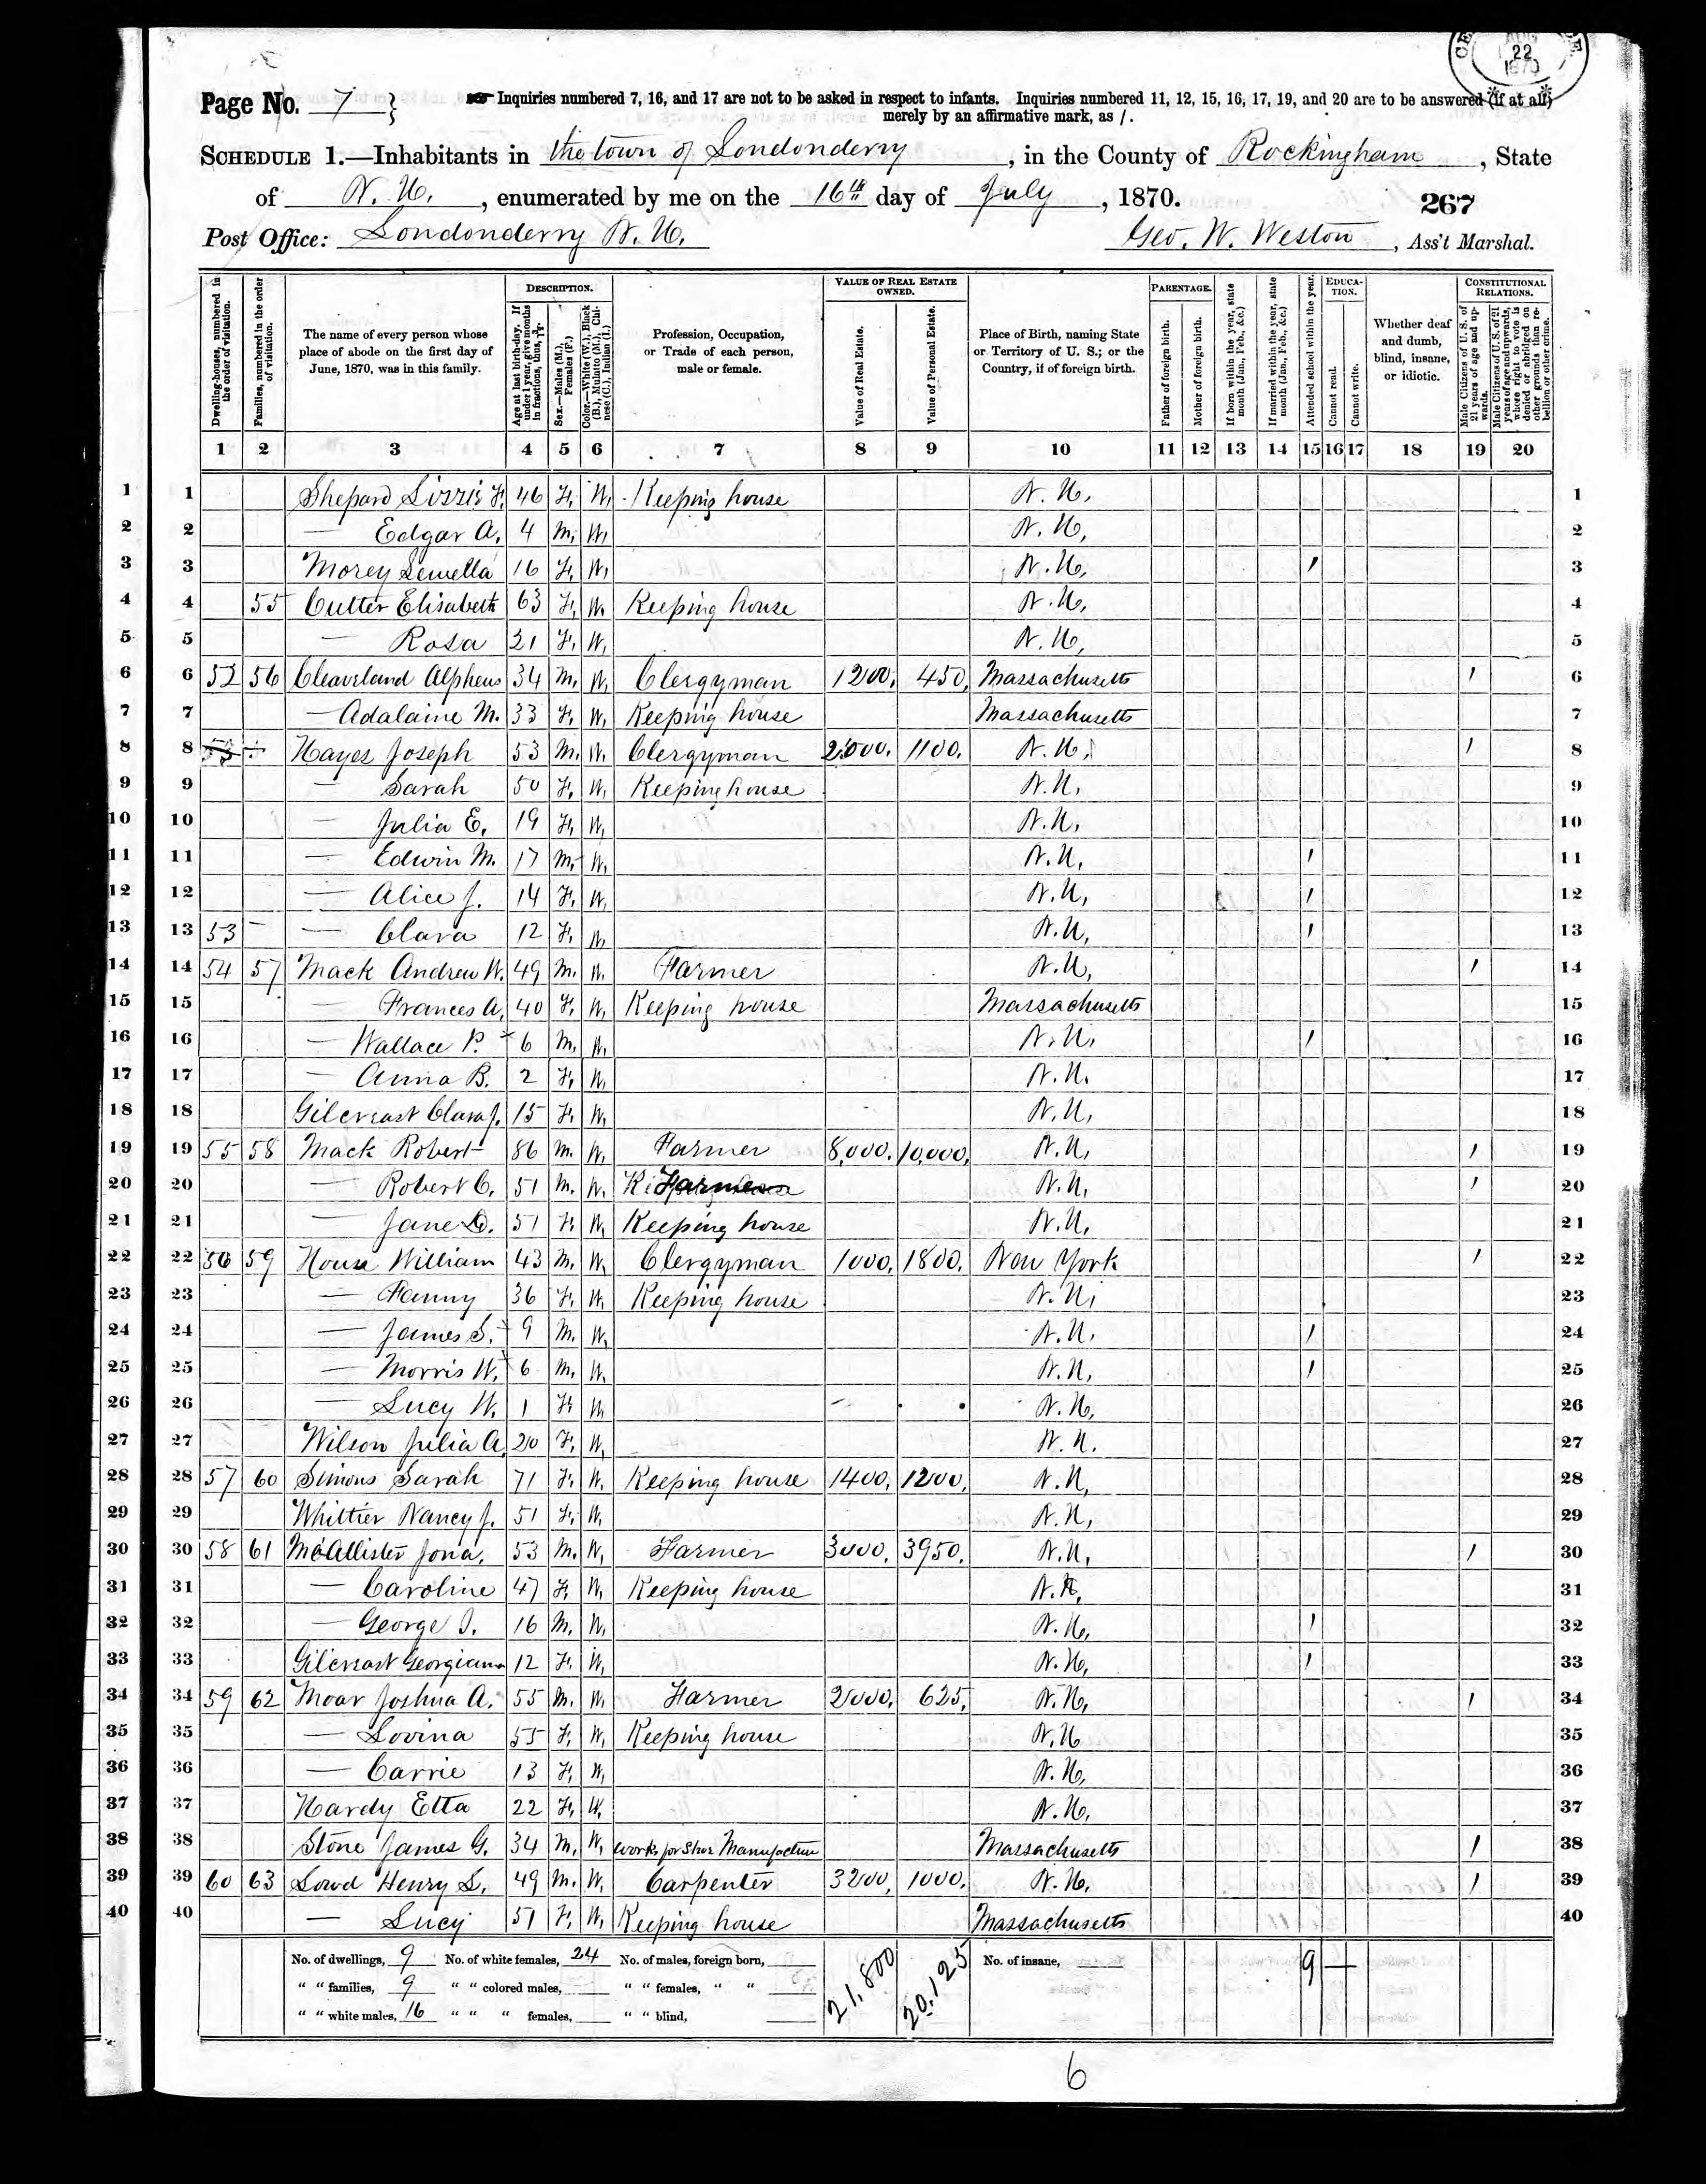 22
1870
Page No. 7 } Inquiries numbered 7, 16, and 17 are not to be asked in respect to infants. Inquiries numbered 11, 12, 15, 16, 17, 19, and 20 are to be answered (if at all)
merely by an affirmative mark, as /.
SCHEDULE 1.—Inhabitants in the town of Londonderry, in the County of Rockingham, State
of N. H., enumerated by me on the 16th day of July, 1870. 267
Post Office: Londonderry N. H. Geo. W. Weston, Ass't Marshal.
Dwelling-houses, numbered in the order of visitation.
Families, numbered in the order of visitation.
The name of every person whose place of abode on the first day of June, 1870, was in this family.
DESCRIPTION.
Age at last birth-day. If under 1 year, give months in fractions, thus, 3/12.
Sex.—Males (M.), Females (F.)
Color.—White (W.), Black (B.), Mulatto (M.), Chinese (C.), Indian (I.)
Profession, Occupation, or Trade of each person, male or female.
VALUE OF REAL ESTATE OWNED.
Value of Real Estate.
Value of Personal Estate.
Place of Birth, naming State or Territory of U. S.; or the Country, if of foreign birth.
PARENTAGE.
Father of foreign birth.
Mother of foreign birth.
If born within the year, state month (Jan., Feb., &c.)
If married within the year, state month (Jan., Feb., &c.)
Attended school within the year.
EDUCATION.
Cannot read.
Cannot write.
Whether deaf and dumb, blind, insane, or idiotic.
CONSTITUTIONAL RELATIONS.
Male Citizens of U. S. of 21 years of age and upwards.
Male Citizens of U. S. of 21 years of age and upwards, whose right to vote is denied or abridged on other grounds than rebellion or other crime.
1 2 3 4 5 6 7 8 9 10 11 12 13 14 15 16 17 18 19 20
1 1 Shepard Lizzie F. 46 F. W. Keeping house N. H. 1
2 2 — Edgar A. 4 M. W. N. H. 2
3 3 Morey Luella 16 F. W. N. H. / 3
4 4 55 Cutter Elisabeth 63 F. W. Keeping house N. H. 4
5 5 — Rosa 21 F. W. N. H. 5
6 6 52 56 Cleaveland Alpheus 34 M. W. Clergyman 1200. 450. Massachusetts / 6
7 7 — Adalaine M. 33 F. W. Keeping house Massachusetts 7
8 8 53 Hayes Joseph 53 M. W. Clergyman 2000. 1100. N. H. / 8
9 9 — Sarah 50 F. W. Keeping house N. H. 9
10 10 — Julia E. 19 F. W. N. H. 10
11 11 — Edwin M. 17 M. W. N. H. / 11
12 12 — Alice J. 14 F. W. N. H. / 12
13 13 53 — — Clara 12 F. W. N. H. / 13
14 14 54 57 Mack Andrew W. 49 M. W. Farmer N. H. / 14
15 15 — Frances A. 40 F. W. Keeping house Massachusetts 15
16 16 — Wallace P. 6 M. W. N. H. / 16
17 17 — Anna B. 2 F. W. N. H. 17
18 18 Gilcreast Clara J. 15 F. W. N. H. 18
19 19 55 58 Mack Robert 86 M. W. Farmer 8,000. 10,000. N. H. / 19
20 20 — Robert C. 51 M. W. Farmer N. H. / 20
21 21 — Jane D. 51 F. W. Keeping house N. H. 21
22 22 56 59 House William 43 M. W. Clergyman 1000. 1800. New York / 22
23 23 — Fanny 36 F. W. Keeping house N. H. 23
24 24 — James S. 9 M. W. N. H. / 24
25 25 — Morris W. 6 M. W. N. H. / 25
26 26 — Lucy W. 1 F. W. N. H. 26
27 27 Wilson Julia A. 20 F. W. N. H. 27
28 28 57 60 Simons Sarah 71 F. W. Keeping house 1400. 1200. N. H. 28
29 29 Whittier Nancy J. 51 F. W. N. H. 29
30 30 58 61 McAllister Jona. 53 M. W. Farmer 3000. 3950. N. H. / 30
31 31 — Caroline 47 F. W. Keeping house N. H. 31
32 32 — George I. 16 M. W. N. H. / 32
33 33 Gilcreast Georgianna 12 F. W. N. H. / 33
34 34 59 62 Moar Joshua A. 55 M. W. Farmer 2000. 625. N. H. / 34
35 35 — Lovina 55 F. W. Keeping house N. H 35
36 36 — Carrie 13 F. W. N. H. 36
37 37 Hardy Etta 22 F. W. N. H. 37
38 38 Stone James G. 34 M. W. Works for Shoe Manufacture Massachusetts / 38
39 39 60 63 Lowd Henry S. 49 M. W. Carpenter 3200. 1000. N. H. / 39
40 40 — Lucy 51 F. W. Keeping house Massachusetts 40
No. of dwellings, 9 No. of white females, 24 No. of males, foreign born, 21,800 20,125 No. of insane, 9
" " families, 9 " " colored males, " " females, " "
" " white males, 16 " " " females, " " blind,
6